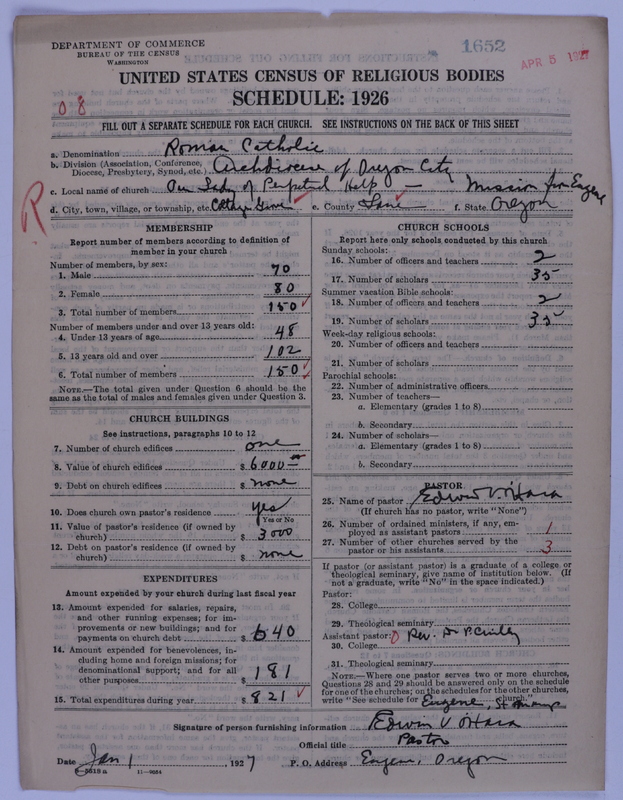 DEPARTMENT OF COMMERCE
BUREAU OF THE CENSUS
WASHINGTON
1652
APR 5 1927
UNITED STATES CENSUS OF RELIGIOUS BODIES
SCHEDULE: 1926
08
FILL OUT A SEPARATE SCHEDULE FOR EACH CHURCH. SEE INSTRUCTIONS ON THE BACK OF THIS SHEET
a. Denomination Roman Catholic
b. Division (Association, Conference, Diocese, Presbytery, Synod, etc.) Archdiocese of Oregon City
c. Local name of church Our Lady of Perpetual Help — Mission from Eugene
R
d. City, town, village, or township, etc. Cottage Grove e. County Lane f. State Oregon
MEMBERSHIP
Report number of members according to definition of
member in your church
Number of members, by sex:
1. Male 70
2. Female 80
3. Total number of members 150
Number of members under and over 13 years old:
4. Under 13 years of age 48
5. 13 years old and over 102
6. Total number of members 150
NOTE.—The total given under Question 6 should be the
same as the total of males and females given under Question 3.
CHURCH BUILDINGS
See instructions, paragraphs 10 to 12
7. Number of church edifices one
8. Value of church edifices $ 6000
9. Debt on church edifices $ none
10. Does church own pastor's residence yes
Yes or No
11. Value of pastor's residence (if owned by
church) $ 3000
12. Debt on pastor's residence (if owned by
church) $ none
EXPENDITURES
Amount expended by your church during last fiscal year
13. Amount expended for salaries, repairs,
and other running expenses; for im-
provements or new buildings; and for
payments on church debt $ 640
14. Amount expended for benevolences, in-
cluding home and foreign missions; for
denominational support; and for all
other purposes $ 181
15. Total expenditures during year $ 821
CHURCH SCHOOLS
Report here only schools conducted by this church
Sunday schools:
16. Number of officers and teachers 2
17. Number of scholars 35
Summer vacation Bible schools:
18. Number of officers and teachers 2
19. Number of scholars 35
Week-day religious schools:
20. Number of officers and teachers
21. Number of scholars
Parochial schools:
22. Number of administrative officers
23. Number of teachers—
a. Elementary (grades 1 to 8)
b. Secondary
24. Number of scholars—
a. Elementary (grades 1 to 8)
b. Secondary
PASTOR
25. Name of pastor Edwin V. O'Hara
(If church has no pastor, write "None")
26. Number of ordained ministers, if any, em-
ployed as assistant pastors 1
27. Number of other churches served by the
pastor or his assistants 3
If pastor (or assistant pastor) is a graduate of a college or
theological seminary, give name of institution below. (If
not a graduate, write "No" in the space indicated.)
Pastor:
28. College
29. Theological seminary
Assistant pastor: 0 Rev.
30. College
31. Theological seminary
NOTE.—Where one pastor serves two or more churches,
Questions 28 and 29 should be answered only on the schedule
for one of the churches; on the schedules for the other churches,
write "See schedule for Eugene, church."
Signature of person furnishing information Edwin V O'Hara
Official title Pastor
Date Jan 1, 1927 P. O. Address Eugene, Oregon
8—5518a 11—9084